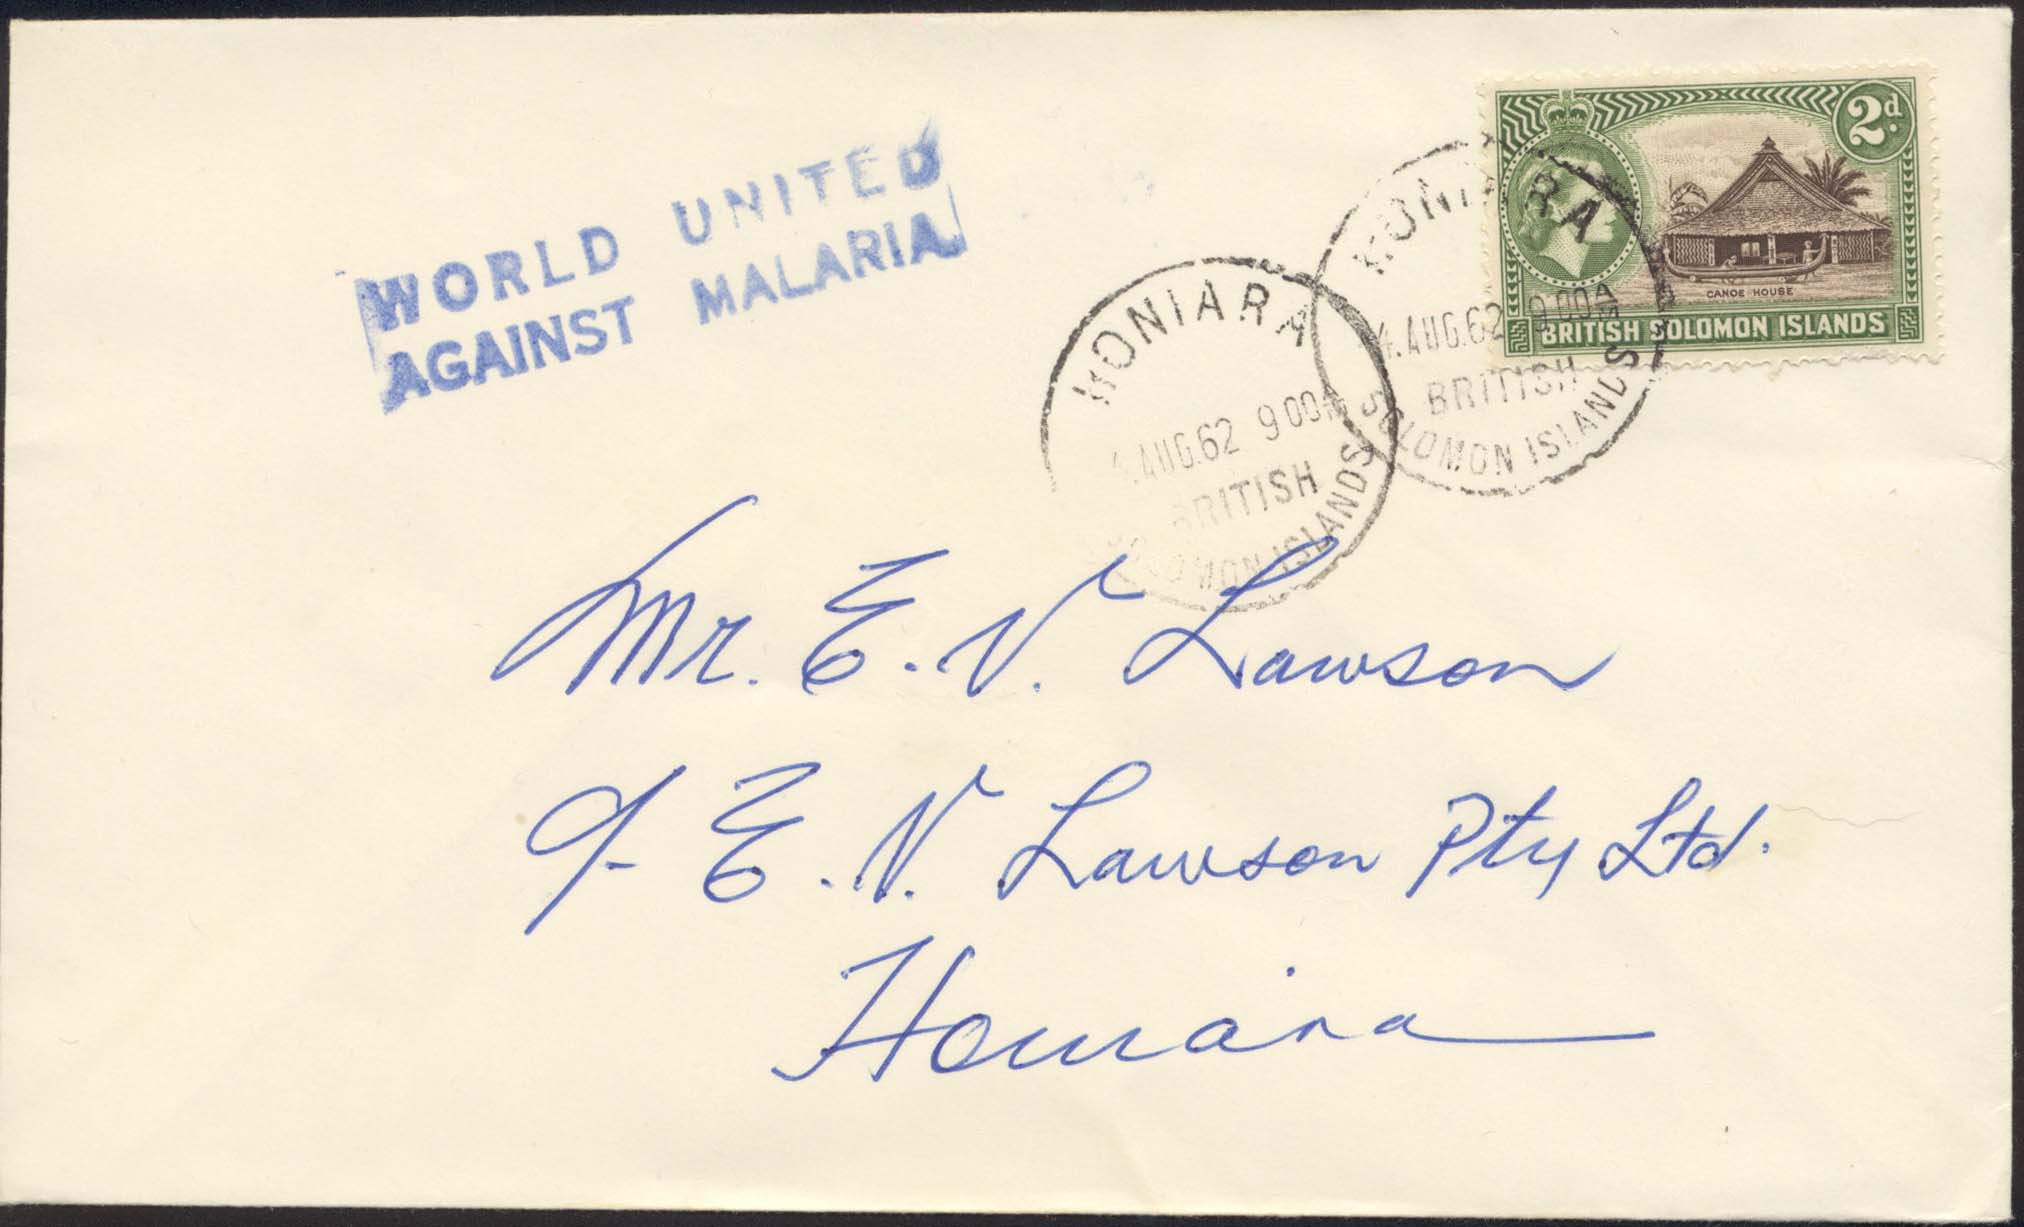 WORLD UNITED
AGAINST MALARIA
2d.
CANOE HOUSE
BRITISH SOLOMON ISLANDS
HONIARA
4.AUG.62 9 00AM
BRITISH
SOLOMON ISLANDS
HONIARA
4.AUG.62 9 00AM
BRITISH
SOLOMON ISLANDS
Mr. E. V. Lawson
c/- E. V. Lawson Pty Ltd.
Honiara